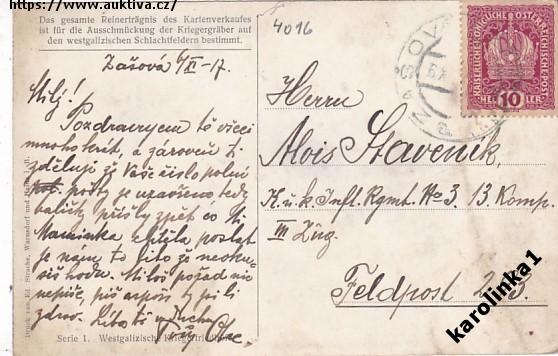 https://www.auktiva.cz/
Das gesamte Reinerträgnis des Kartenverkaufes
ist für die Ausschmückung der Kriegergräber auf
den westgalizischen Schlachtfeldern bestimmt.
4016
Zašová 6/XI - 17.
Milý!
Pozdravujem tě všeci
mnohokrát, a zároveň ti
zděluji že Vaše číslo polní
pošty je uzavřeno tedy
balíčky přišly zpět co ti
Maminka chtěla poslat
je nam to líto že neoku-
síš trochu. Miloš pořad nic
nepíše, piš aspoň ty jsi li
zdrav. Líbá tě v duchu
Tvůj Otec.
Serie 1. Westgalizische Kriegerfriedhöfe
KAISERLICHE KÖNIGLICHE ÖSTERREICHISCHE POST
HELLER 10 HELLER
Herrn
Alois Slaveník,
K. u. k. Inft. Rgmt. No 3. 13. Komp.
III Zug.
Feldpost
karolinka1